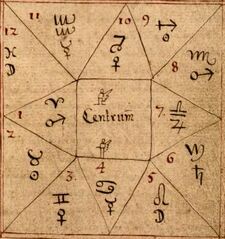 11
10
9
12
♒
♑
♐
♀
♏
♂
8
1
♈
♂
Centrum
7
♎
2
♉
3
♊
♀
4
♋
5
♌
6
♍
♄